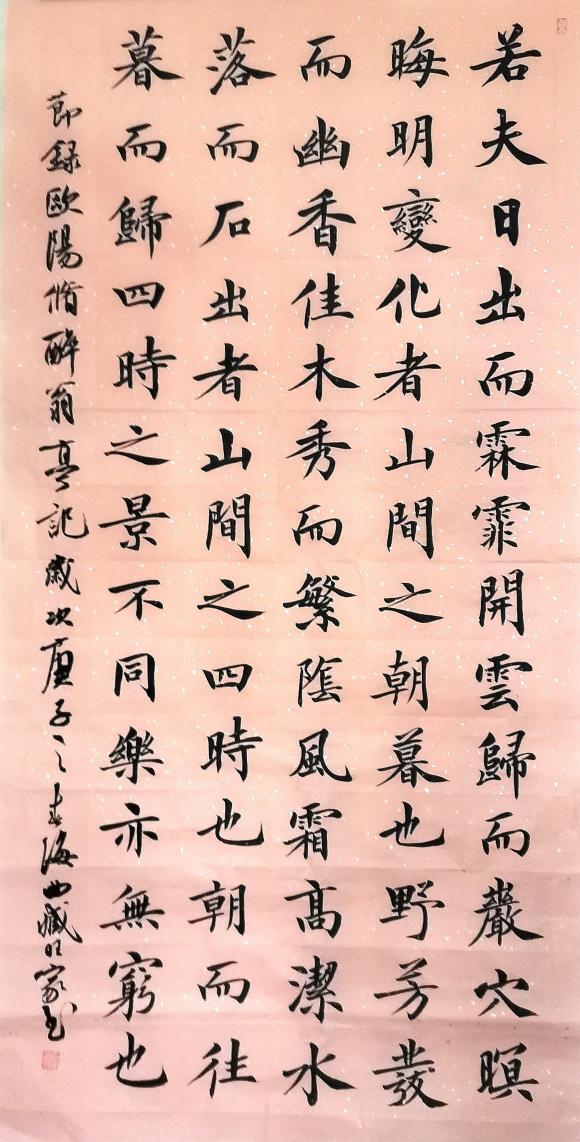 若夫日出而霖霏開雲歸而巖穴暝
晦明變化者山間之朝暮也野芳發
而幽香佳木秀而繁隂風霜高潔水
落而石出者山間之四時也朝而往
暮而歸四時之景不同樂亦無窮也
節録歐陽脩醉翁亭記歲次庚子之春海曲臧旺家书